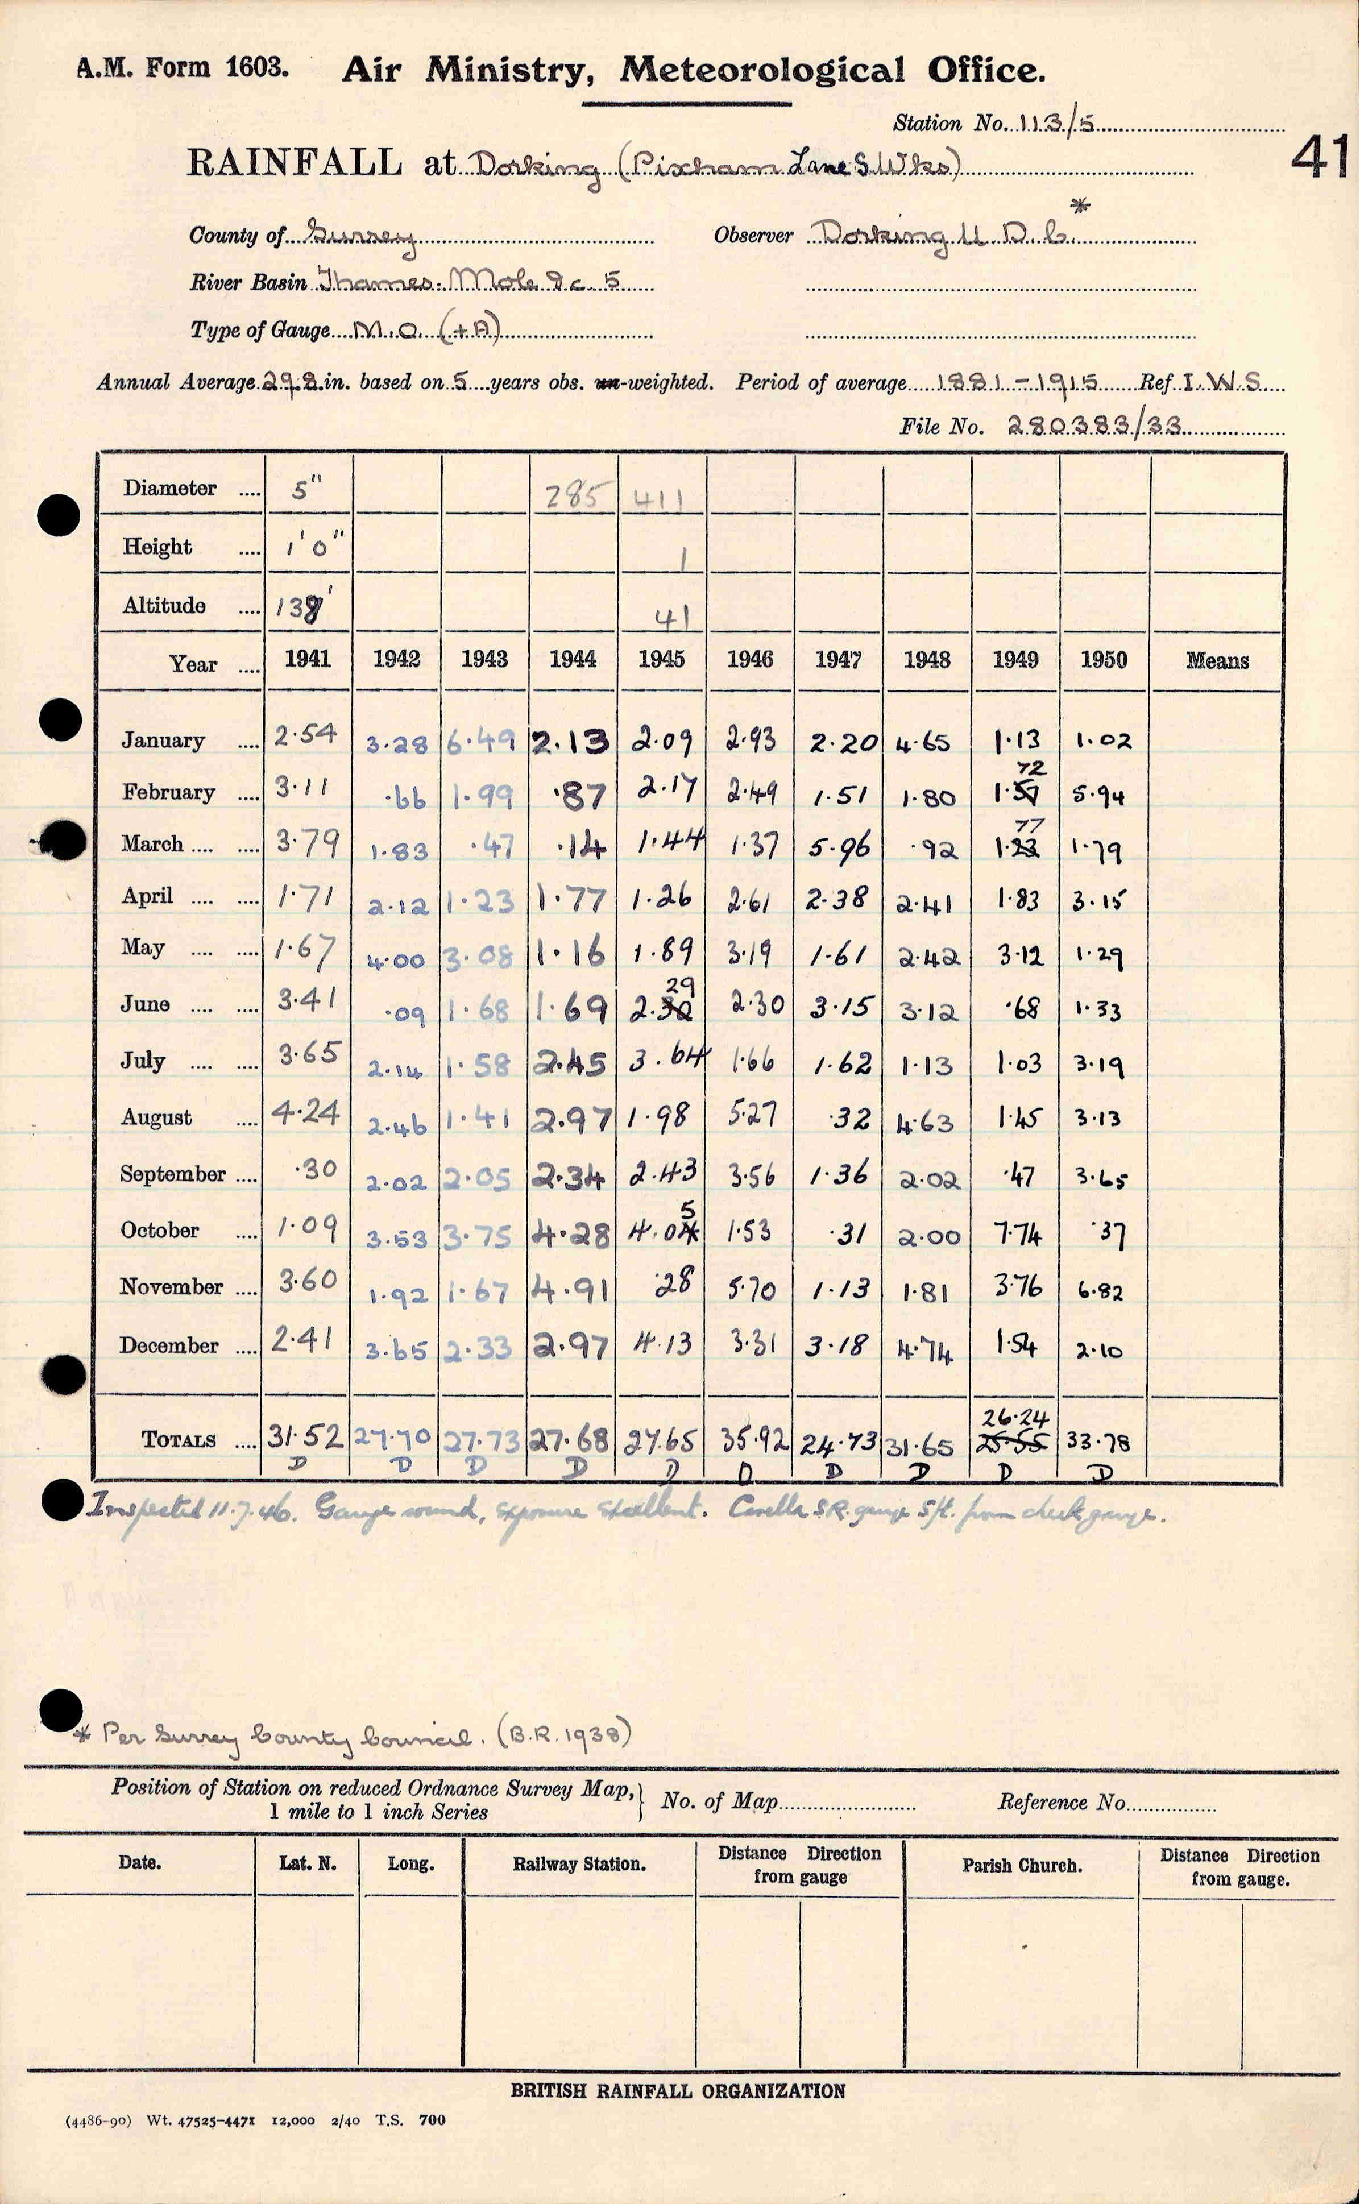 A.M. Form 1603. Air Ministry, Meteorological Office.
Station No. 113/5
41
RAINFALL at Dorking (Pixham Lane S. Wks)
County of Surrey Observer Dorking U.D.C.*
River Basin Thames - Mole &c. 5
Type of Gauge M.O. (+A)
Annual Average 29.8 in. based on 5 years obs. un-weighted. Period of average 1881-1915 Ref I.W.S.
File No. 280383/33
Diameter .... 5" 285 411
Height .... 1'0" 1
Altitude .... 138' 41
Year .... 1941 1942 1943 1944 1945 1946 1947 1948 1949 1950 Means
January .... 2.54 3.28 6.49 2.13 2.09 2.93 2.20 4.65 1.13 1.02
72
February .... 3.11 .66 1.99 .87 2.17 2.49 1.51 1.80 1.57 5.94
77
March .... .... 3.79 1.83 .47 .14 1.44 1.37 5.96 .92 1.23 1.79
April .... .... 1.71 2.12 1.23 1.77 1.26 2.61 2.38 2.41 1.83 3.15
May .... .... 1.67 4.00 3.08 1.16 1.89 3.19 1.61 2.42 3.12 1.29
29
June .... .... 3.41 .09 1.68 1.69 2.30 2.30 3.15 3.12 .68 1.33
July .... .... 3.65 2.14 1.58 2.45 3.64 1.66 1.62 1.13 1.03 3.19
August .... 4.24 2.46 1.41 2.97 1.98 5.27 .32 4.63 1.45 3.13
September .... .30 2.02 2.05 2.34 2.43 3.56 1.36 2.02 .47 3.65
5
October .... 1.09 3.53 3.75 4.28 4.04 1.53 .31 2.00 7.74 .37
November .... 3.60 1.92 1.67 4.91 .28 5.70 1.13 1.81 3.76 6.82
December .... 2.41 3.65 2.33 2.97 4.13 3.31 3.18 4.74 1.54 2.10
26.24
TOTALS .... 31.52 27.70 27.73 27.68 27.65 35.92 24.73 31.65 25.55 33.78
D D D D D D D D D D
Inspected 11.7.46. Gauge sound, exposure excellent. Casella S.R. gauge 5ft. from check gauge.
* Per Surrey County Council. (B.R. 1938)
Position of Station on reduced Ordnance Survey Map, } No. of Map Reference No.
1 mile to 1 inch Series
Date. Lat. N. Long. Railway Station. Distance Direction from gauge Parish Church. Distance Direction from gauge.
BRITISH RAINFALL ORGANIZATION
(4486-90) Wt. 47525-4471 12,000 2/40 T.S. 700